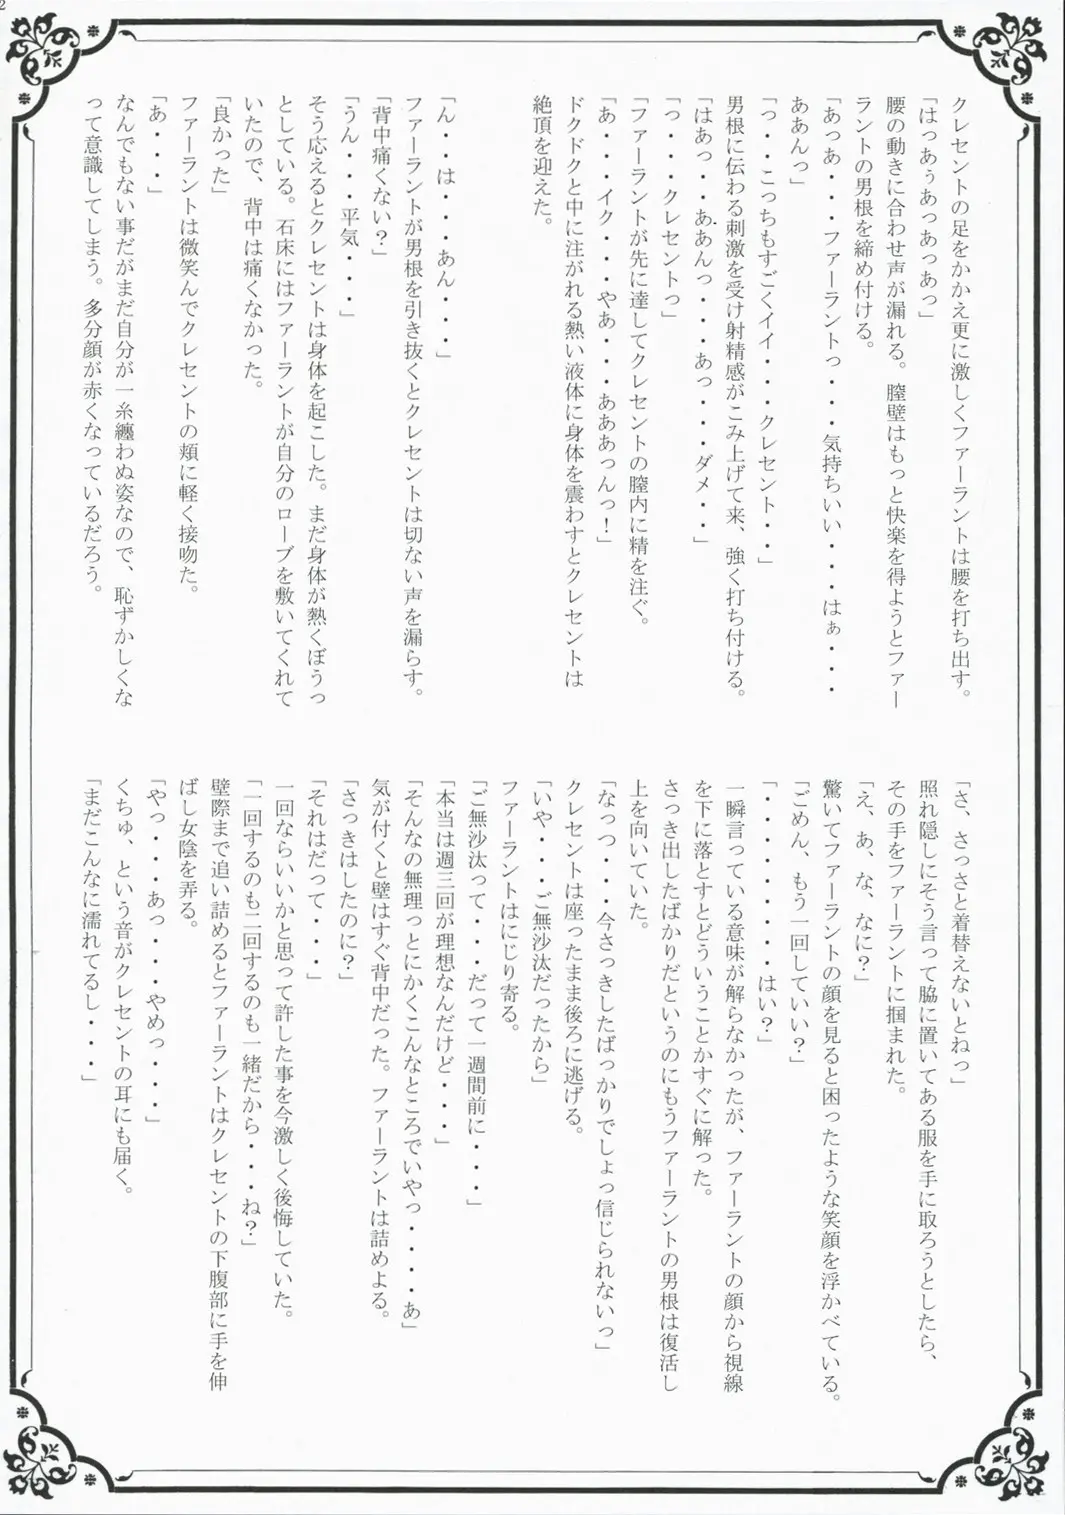 2
クレセントの足をかかえ更に激しくファーラントは腰を打ち出す。
「はっあぅあっあっあっ」
腰の動きに合わせ声が漏れる。膣壁はもっと快楽を得ようとファー
ラントの男根を締め付ける。
「あっあ・・・ファーラントっ・・・気持ちいい・・・はぁ・・・
ああんっ」
「っ・・こっちもすごくイイ・・・クレセント・・」
男根に伝わる刺激を受け射精感がこみ上げて来、強く打ち付ける。
「はあっ・・ああんっ・・・あっ・・・ダメ・・」
「っ・・・クレセントっ」
「ファーラントが先に達してクレセントの膣内に精を注ぐ。
「あ・・・イク・・・やぁ・・・あああっんっ！」
ドクドクと中に注がれる熱い液体に身体を震わすとクレセントは
絶頂を迎えた。
「ん・・は・・・あん・・・」
ファーラントが男根を引き抜くとクレセントは切ない声を漏らす。
「背中痛くない？」
「うん・・・平気・・・」
そう応えるとクレセントは身体を起こした。まだ身体が熱くぼうっ
としている。石床にはファーラントが自分のローブを敷いてくれて
いたので、背中は痛くなかった。
「良かった」
ファーラントは微笑んでクレセントの頬に軽く接吻た。
「あ・・・」
なんでもない事だがまだ自分が一糸纏わぬ姿なので、恥ずかしくな
って意識してしまう。多分顔が赤くなっているだろう。
「さ、さっさと着替えないとねっ」
照れ隠しにそう言って脇に置いてある服を手に取ろうとしたら、
その手をファーラントに掴まれた。
「え、あ、な、なに？」
驚いてファーラントの顔を見ると困ったような笑顔を浮かべている。
「ごめん、もう一回していい？」
「・・・・・・・はい？」
一瞬言っている意味が解らなかったが、ファーラントの顔から視線
を下に落とすとどういうことかすぐに解った。
さっき出したばかりだというのにもうファーラントの男根は復活し
上を向いていた。
「なっっ・・・今さっきしたばっかりでしょっ信じられないっ」
クレセントは座ったまま後ろに逃げる。
「いや・・・ご無沙汰だったから」
ファーラントはにじり寄る。
「ご無沙汰って・・・だって一週間前に・・・」
「本当は週三回が理想なんだけど・・・」
「そんなの無理っとにかくこんなところでいやっ・・・・あ」
気が付くと壁はすぐ背中だった。ファーラントは詰めよる。
「さっきはしたのに？」
「それはだって・・・」
一回ならいいかと思って許した事を今激しく後悔していた。
「一回するのも二回するのも一緒だから・・・ね？」
壁際まで追い詰めるとファーラントはクレセントの下腹部に手を伸
ばし女陰を弄る。
「やっ・・・あっ・・・やめっ・・・」
くちゅ、という音がクレセントの耳にも届く。
「まだこんなに濡れてるし・・・」